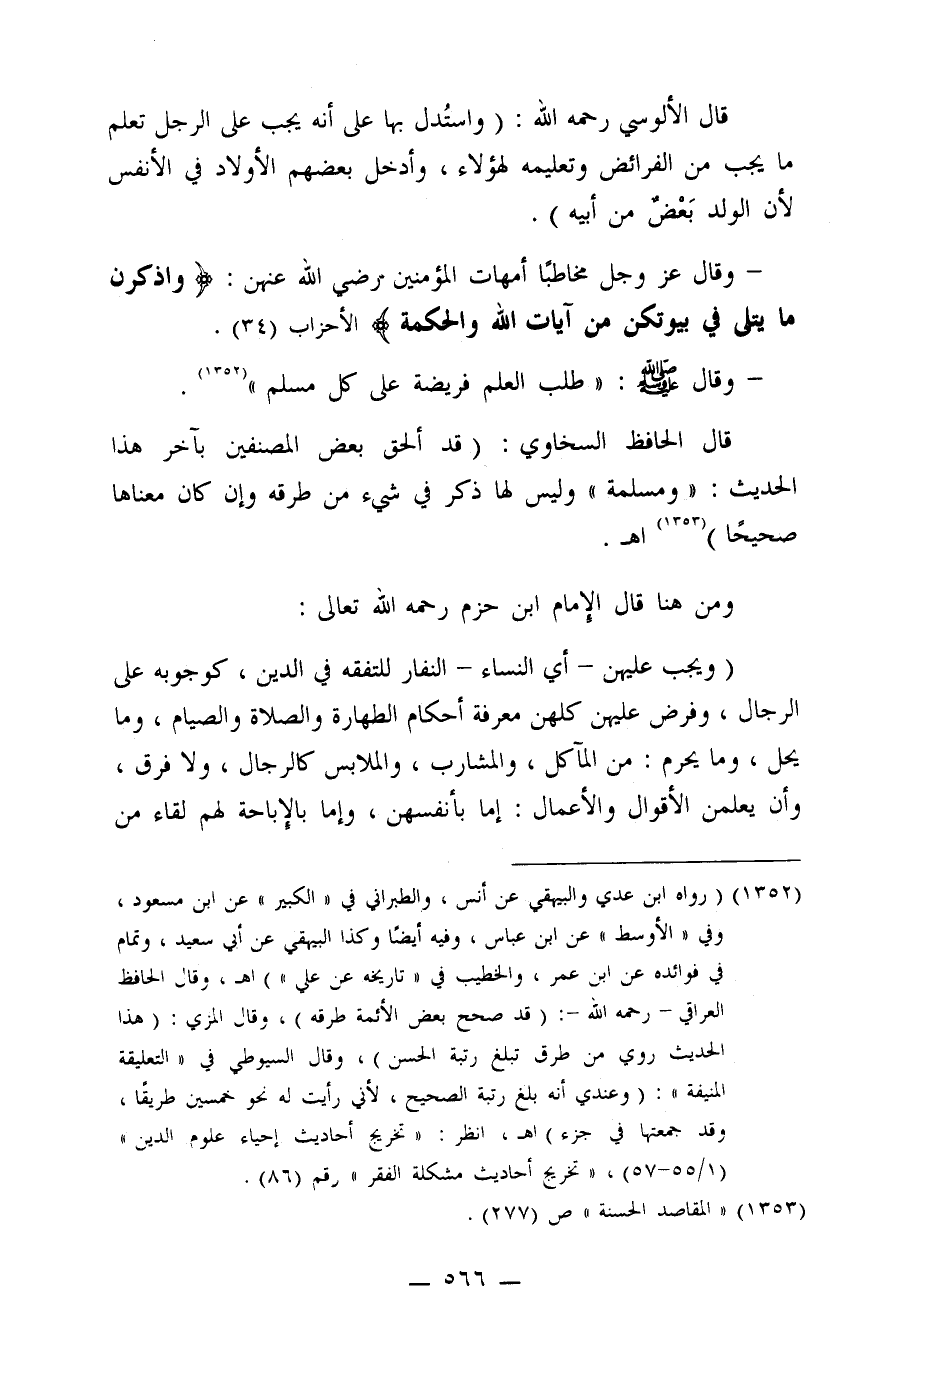 قال الألوسي رحمه الله : ( واستُدل بها على أنه يجب على الرجل تعلم
ما يجب من الفرائض وتعليمه لهؤلاء ، وأدخل بعضهم الأولاد في الأنفس
لأن الولد بَعْضٌ من أبيه ) .
– وقال عز وجل مخاطبًا أمهات المؤمنين رضي الله عنهن : ﴿ واذكرن
ما يتلى في بيوتكن من آيات الله والحكمة ﴾ الأحزاب (٣٤) .
– وقال ﷺ : « طلب العلم فريضة على كل مسلم »(١٣٥٢) .
قال الحافظ السخاوي : ( قد ألحق بعض المصنفين بآخر هذا
الحديث : « ومسلمة » وليس لها ذكر في شيء من طرقه وإن كان معناها
صحيحًا )(١٣٥٣) اهـ .
ومن هنا قال الإمام ابن حزم رحمه الله تعالى :
( ويجب عليهن – أي النساء – النفار للتفقه في الدين ، كوجوبه على
الرجال ، وفرض عليهن كلهن معرفة أحكام الطهارة والصلاة والصيام ، وما
يحل ، وما يحرم : من المآكل ، والمشارب ، والملابس كالرجال ، ولا فرق ،
وأن يعلمن الأقوال والأعمال : إما بأنفسهن ، وإما بالإباحة لهم لقاء من
(١٣٥٢) ( رواه ابن عدي والبيهقي عن أنس ، والطبراني في « الكبير » عن ابن مسعود ،
وفي « الأوسط » عن ابن عباس ، وفيه أيضًا وكذا البيهقي عن أبي سعيد ، وتمام
في فوائده عن ابن عمر ، والخطيب في « تاريخه عن علي » ) اهـ ، وقال الحافظ
العراقي – رحمه الله –: ( قد صحح بعض الأئمة طرقه ) ، وقال المزي : ( هذا
الحديث روي من طرق تبلغ رتبة الحسن ) ، وقال السيوطي في « التعليقة
المنيفة » : ( وعندي أنه بلغ رتبة الصحيح ، لأني رأيت له نحو خمسين طريقًا ،
وقد جمعتها في جزء ) اهـ ، انظر : « تخريج أحاديث إحياء علوم الدين »
(٥٥/١–٥٧) ، « تخريج أحاديث مشكلة الفقر » رقم (٨٦) .
(١٣٥٣) « المقاصد الحسنة » ص (٢٧٧) .
— ٥٦٦ —